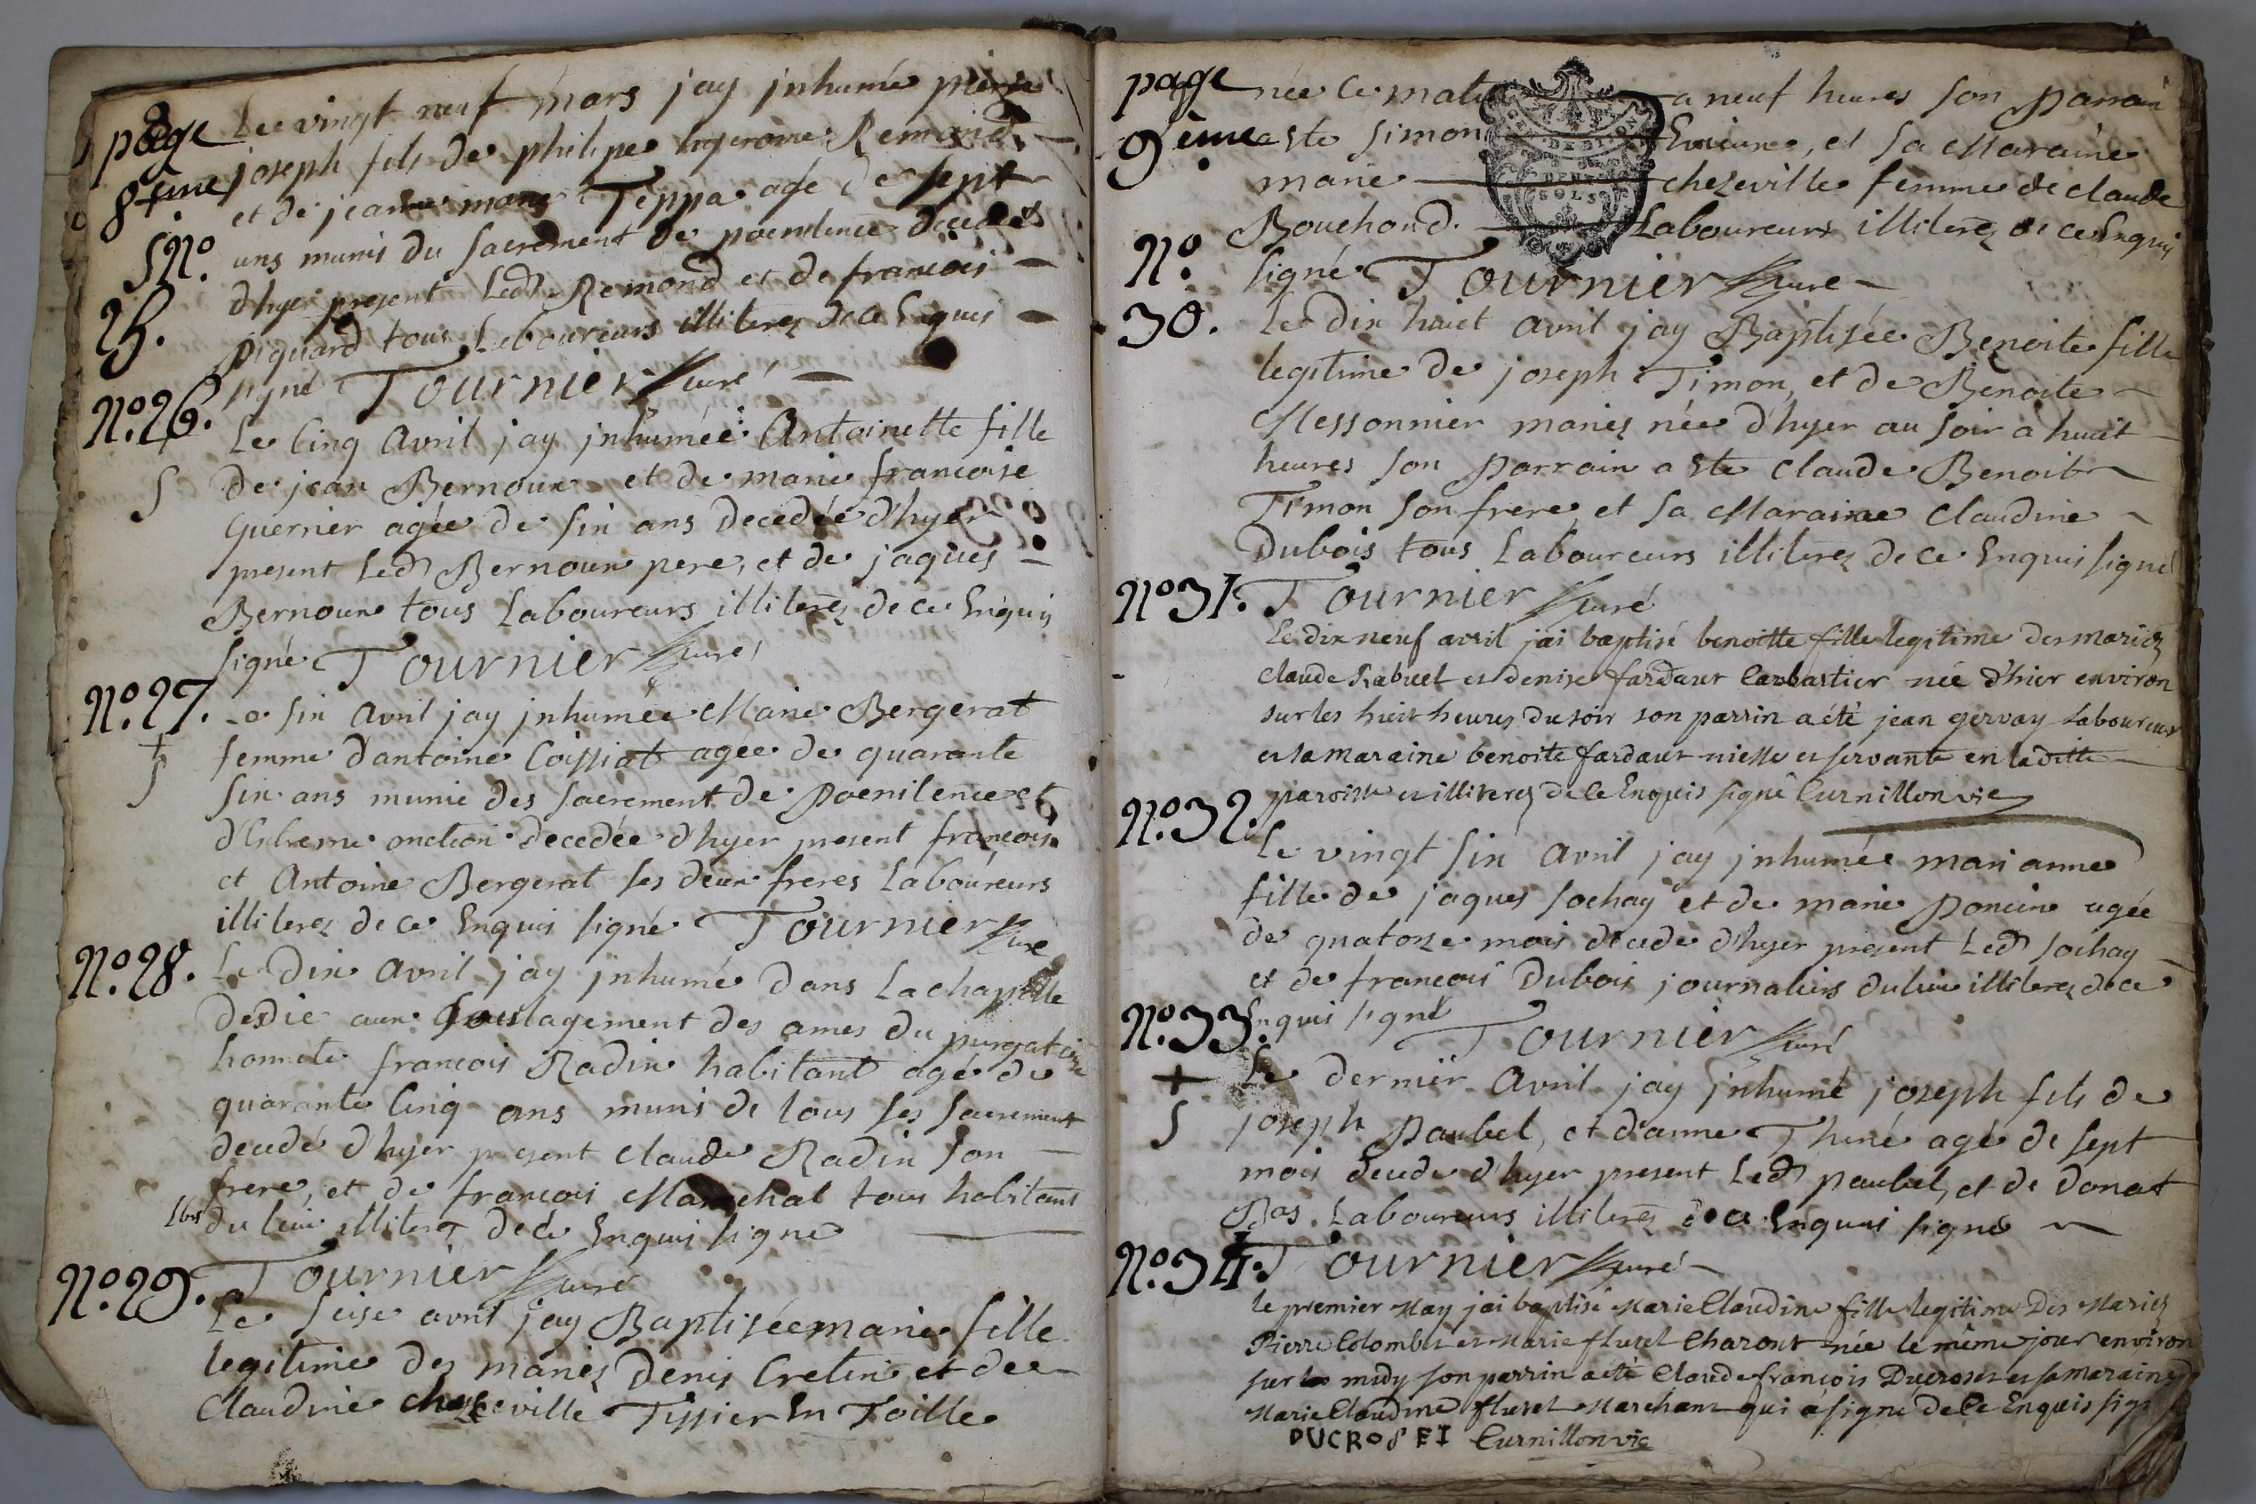 page
8ème
Le vingt neuf mars jay jnhumé pierre
joseph fils de philipe Remond
et de jeanne marie Teppa agé de sept
S N°.
25.
ans munis du sacrement de poenitence decedé
d'hyer present Led Remond et de francois
piquard tous Laboureurs illiterez de ce Enquis
signé Tournier curé
N°.26.
S
Le Cinq Avril jay jnhumée Antoinette fille
de jean Bernoux et de marie francoise
Guerrier agée de six ans decedée d'hyer
present Led Bernoux pere, et de jaques
Bernoux tous Laboureurs illiterez de ce Enquis
signé Tournier curé
N°.27.
S
Le six Avril jay jnhumée Marie Bergerat
femme d'antoine Coissiat agée de quarante
six ans munie des sacrement de poenitence et
d'Extreme onction decedée d'hyer present francois
et Antoine Bergerat ses deux freres Laboureurs
illiterez de ce Enquis signé Tournier curé
N°.28.
Le dix Avril jay jnhumé dans La chapelle
dedie aux soulagement des ames du purgatoire
honnete francois Radix habitant agé de
quarante Cinq ans munis de tous ses sacrement
decedé d'hyer present claude Radix son
frere, et de francois Marechal tous habitans
Lbrs du lieu illiterez de ce Enquis signé
Tournier curé
N°.29.
Le seise avril jay Baptisée marie fille
legitime des mariez Denis Cretin et de
Claudine chezeville Tissier En Toille
page
9ème
née ce matin a neuf heures son parrain
a ste simon et sa Maraine
marie chezeville femme de claude
Bouchard Laboureurs illiterez de ce Enquis
signé Tournier curé
N°.
30.
Le dix huict Avril jay Baptisée Benoite fille
legitime de joseph Timon, et de Benoite
Messonnier mariez née d'hyer au soir à huict
heures son parrain a ste Claude Benoit
Timon son frere, et sa Maraine Claudine
Dubois tous Laboureurs illiterez de ce Enquis signé
Tournier curé
N°.31.
Le dix neuf avril jai baptisé benoitte fille legitime des mariez
claude Rabuel et denise fardaux née d'hier environ
sur les huit heures du soir son parrin a été jean gervay Laboureur
et sa maraine benoite fardaux niesse et servante en la ditte
paroisse et illiterez de ce Enquis signé Curnillon vic
N°.32.
Le vingt six Avril jay jnhumée marianne
fille de jaques sochay et de marie poncin agée
de quatorze mois decede d'hyer present Led sochay
et de francois Dubois journaliers du lieu illiterez de ce
Enquis signé Tournier curé
N°.33.
+
S
Le dernier Avril jay jnhumé joseph fils de
joseph paubel, et d'anne Thuré agé de sept
mois decede d'hyer present Led paubel, et de Donat
Bas Laboureurs illiterez de ce Enquis signé
Tournier curé
N°.34.
le premier May jai baptisé Marie Claudine fille legitime Des Mariez
Pierre Colomblet et Marie fluret Charont née le même jour environ
sur les midy son parrin a été Claude françois Ducroset et sa maraine
Marie Claudine fluret Marchant qui a signé de Ce Enquis
DUCROSET Curnillon vic